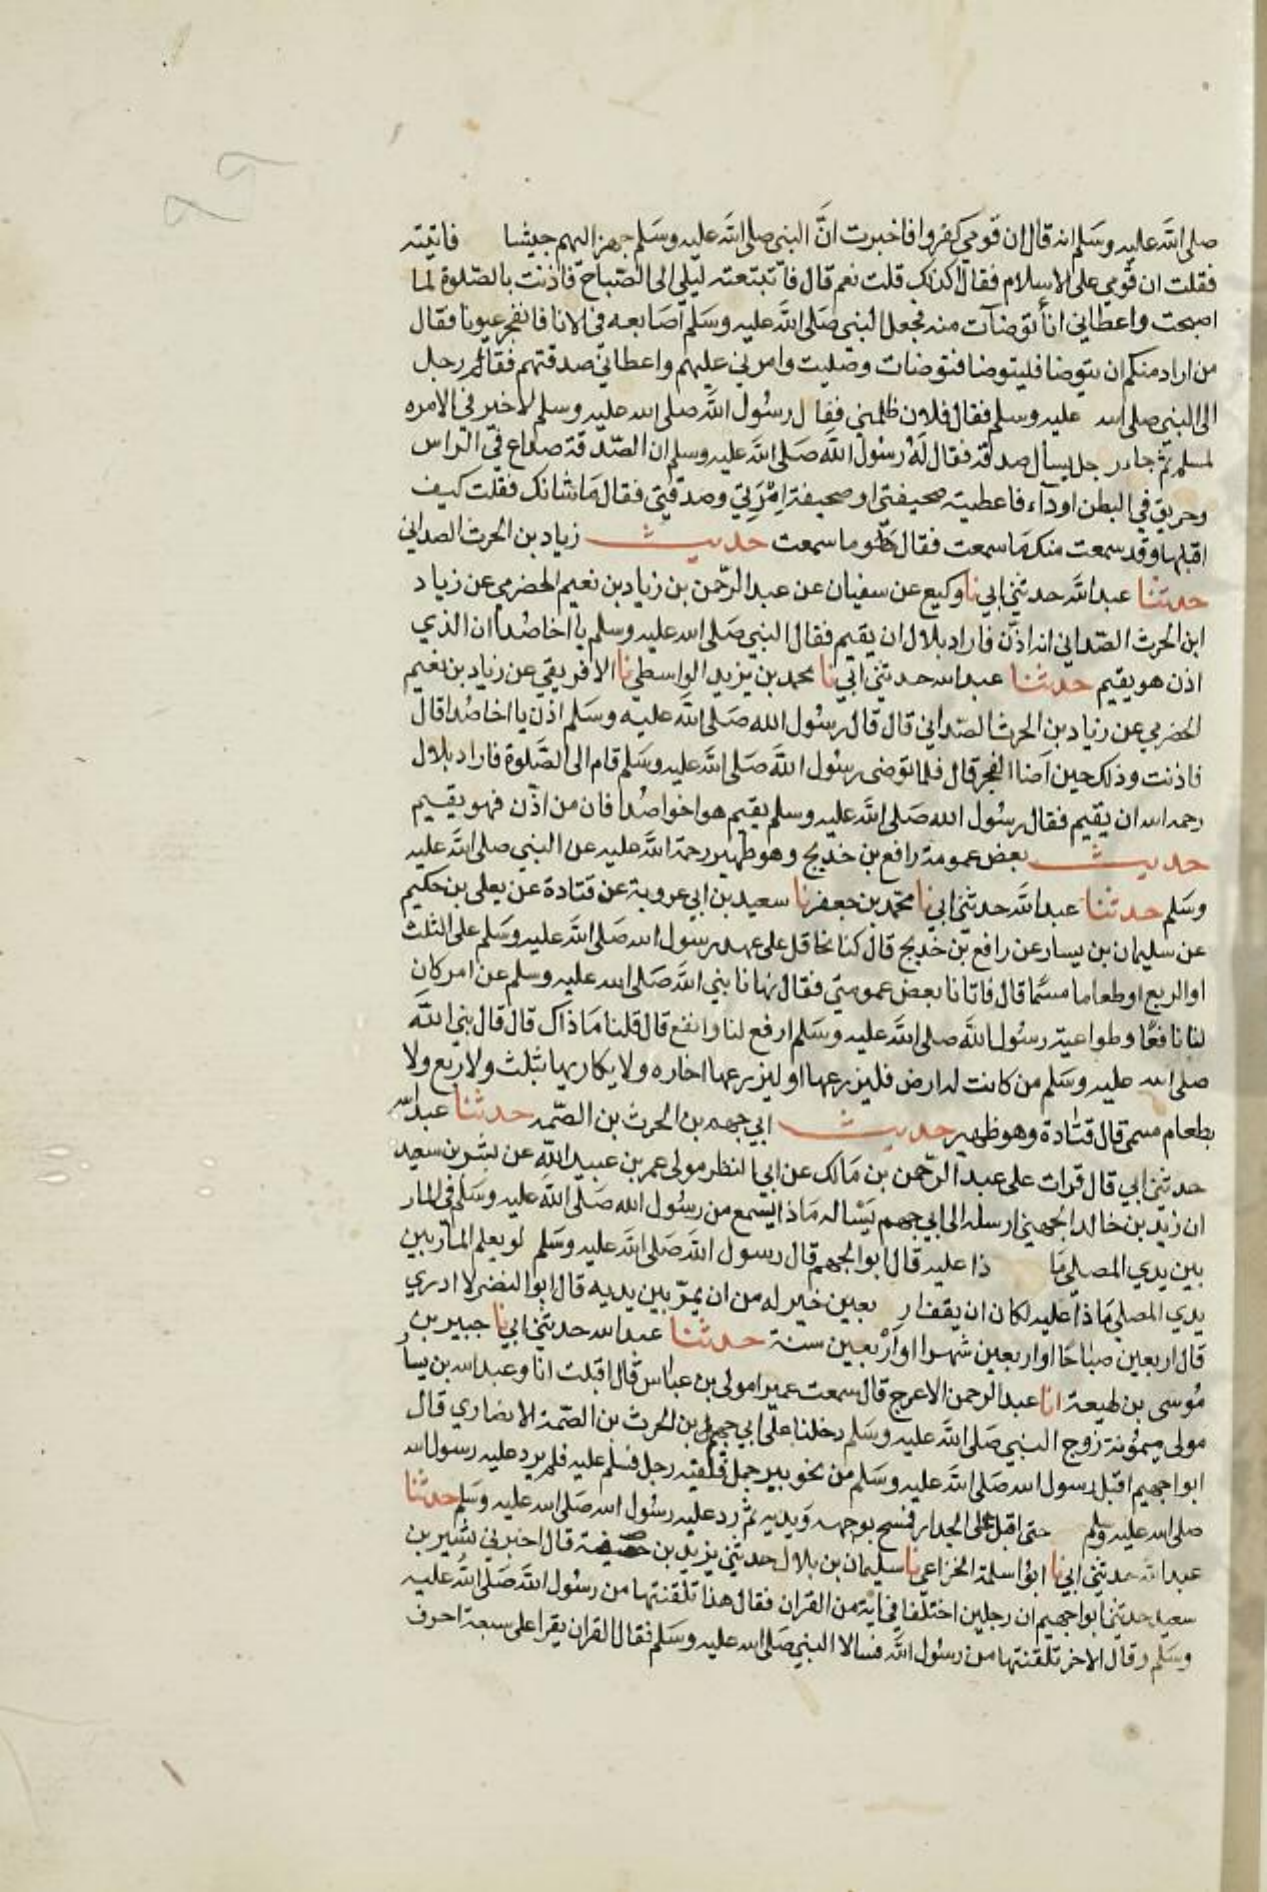 صلى الله عليه وسلم انه قال ان قومي كفروا فاخبرت انَّ النبي صلى الله عليه وسلم جهز اليهم جيشا فاتيته
فقلت ان قومي على الاسلام فقال اكذلك قلت نعم قال فاتبتعته ليلي الى الصباح فاذنت بالصلوة لما
اصبحت واعطاني اناً توضات منه فجعل النبي صلى الله عليه وسلم اصابعه في الانا فانفجر عيونا فقال
من اراد منكم ان يتوضا فليتوضا فتوضات وصليت وامرني عليهم واعطاني صدقتهم فقام رجل
الى النبي صلى الله عليه وسلم فقال فلان ظلمني فقال رسول الله صلى الله عليه وسلم لا خير في الامره
لمسلم ثم جاء رجل يسأل صدقة فقال له رسول الله صلى الله عليه وسلم ان الصدقة صداع في الراس
وحريق في البطن او دآء فاعطيته صحيفتي او صحيفة امرتي وصدقتي فقال ما شانك فقلت كيف
اقبلها وقد سمعت منك ما سمعت فقال هو ما سمعت حديث زياد بن الحرث الصداني
حدثنا عبد الله حدثني ابي نا وكيع عن سفيان عن عبد الرحمن بن زياد بن نعيم الحضرمي عن زياد
ابن الحرث الصداني انه اذن فاراد بلال ان يقيم فقال النبي صلى الله عليه وسلم يا اخا صدا ان الذي
اذن هو يقيم حدثنا عبد الله حدثني ابي نا محمد بن يزيد الواسطي نا الافريقي عن زياد بن نعيم
الحضرمي عن زياد بن الحرث الصداني قال قال رسول الله صلى الله عليه وسلم اذن يا اخا صدا قال
فاذنت وذلك حين اضا الفجر قال فلما توضى رسول الله صلى الله عليه وسلم قام الى الصلوة فاراد بلال
رحمه الله ان يقيم فقال رسول الله صلى الله عليه وسلم يقيم هو اخوا صدا فان من اذن فهو يقيم
حديث بعض عمومة رافع بن خديج وهو ظهير رحمة الله عليه عن النبي صلى الله عليه
وسلم حدثنا عبد الله حدثني ابي نا محمد بن جعفر نا سعيد بن ابي عروبة عن قتادة عن يعلى بن حكيم
عن سليمان بن يسار عن رافع بن خديج قال كنا نحاقل على عهد رسول الله صلى الله عليه وسلم على الثلث
او الربع او طعاما مسمّا قال فاتانا بعض عمومتي فقال نهانا نبي الله صلى الله عليه وسلم عن امر كان
لنا نافعًا وطواعية رسول الله صلى الله عليه وسلم ارفع لنا وانفع قال قلنا ما ذاك قال قال نبي الله
صلى الله عليه وسلم من كانت له ارض فليزرعها او ليزرعها اخاره ولا يكاريها بثلث ولا ربع ولا
بطعام مسمى قال قتادة وهو ظهير حديث ابي جهم بن الحرث بن الصمه حدثنا عبد الله
حدثني ابي قال قرات على عبد الرحمن بن مالك عن ابي النظر مولى عمر بن عبيد الله عن بشر بن سعيد
ان زيد بن خالد الجهيني ارسله الى ابي جهم يسٔاله ماذا يسمع من رسول الله صلى الله عليه وسلم في المار
بين يدي المصلي ما ذا عليه قال ابو الجهم قال رسول الله صلى الله عليه وسلم لو يعلم المار بين
يدي المصلي ما ذا عليه لكان ان يقف ار بعين خير له من ان يمرّ بين يديه قال ابو النضر لا ادري
قال اربعين صباحًا او اربعين شهرا او اربعين سنة حدثنا عبد الله حدثني ابي نا جبير بن
موسى بن لهيعة انا عبد الرحمن الاعرج قال سمعت عميرا مولى بن عباس قال اقبلت انا وعبد الله بن يسار
مولى ميمونة زوج النبي صلى الله عليه وسلم دخلنا على ابي جهم بن الحرث بن الصمة الانصاري قال
ابوا جهيم اقبل رسول الله صلى الله عليه وسلم من نحو بير جمل فلقيه رجل فسلم عليه فلم يرد عليه رسول الله
صلى الله عليه وسلم حتى اقبل على الجدار فمسح بوجهه ويديه ثم رد عليه رسول الله صلى الله عليه وسلم حدثنا
عبد الله حدثني ابي نا ابوا سلمة الخزاعي نا سليمان بن بلال حدثني يزيد بن قال اخبرني بشير بن
سعيد حدثني ابوا جهيم ان رجلين اختلفا في اية من القران فقال هذا تلقنتها من رسول الله صلى الله عليه
وسلم وقال الاخر تلقنتها من رسول الله فسالا النبي صلى الله عليه وسلم فقال القران يقرا على سبعة احرف